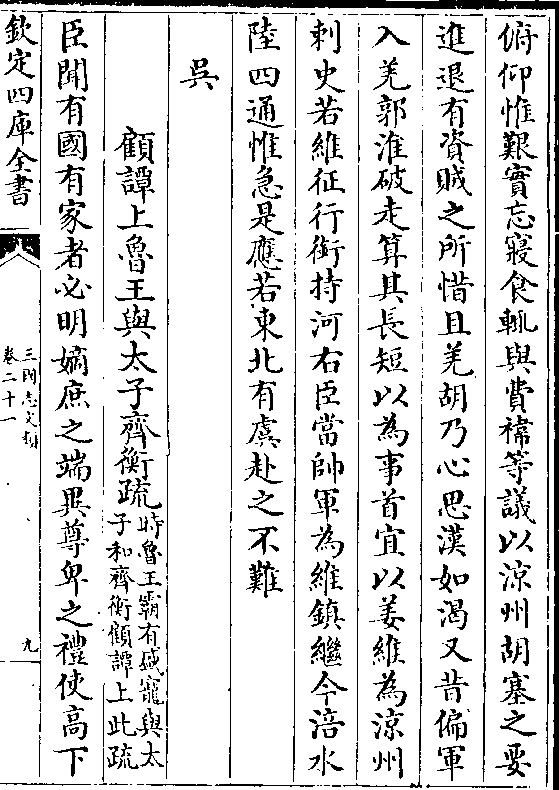 俯仰惟艱實忘寢食輒與費禕等議以涼州胡塞之要
進退有資賊之所惜且羌胡乃心思漢如渴又昔偏軍
入羌郭淮破走算其長短以為事首宜以姜維為涼州
刺史若維征行銜持河右臣當帥軍為維鎮繼今涪水
陸四通惟急是應若東北有虞赴之不難
吳
顧譚上魯王與太子齊衡疏
時魯王霸有盛寵與太
子和齊衡顧譚上此疏
臣聞有國有家者必明嫡庶之端異尊卑之禮使高下
欽定四庫全書
三國志文類
卷二十一
九